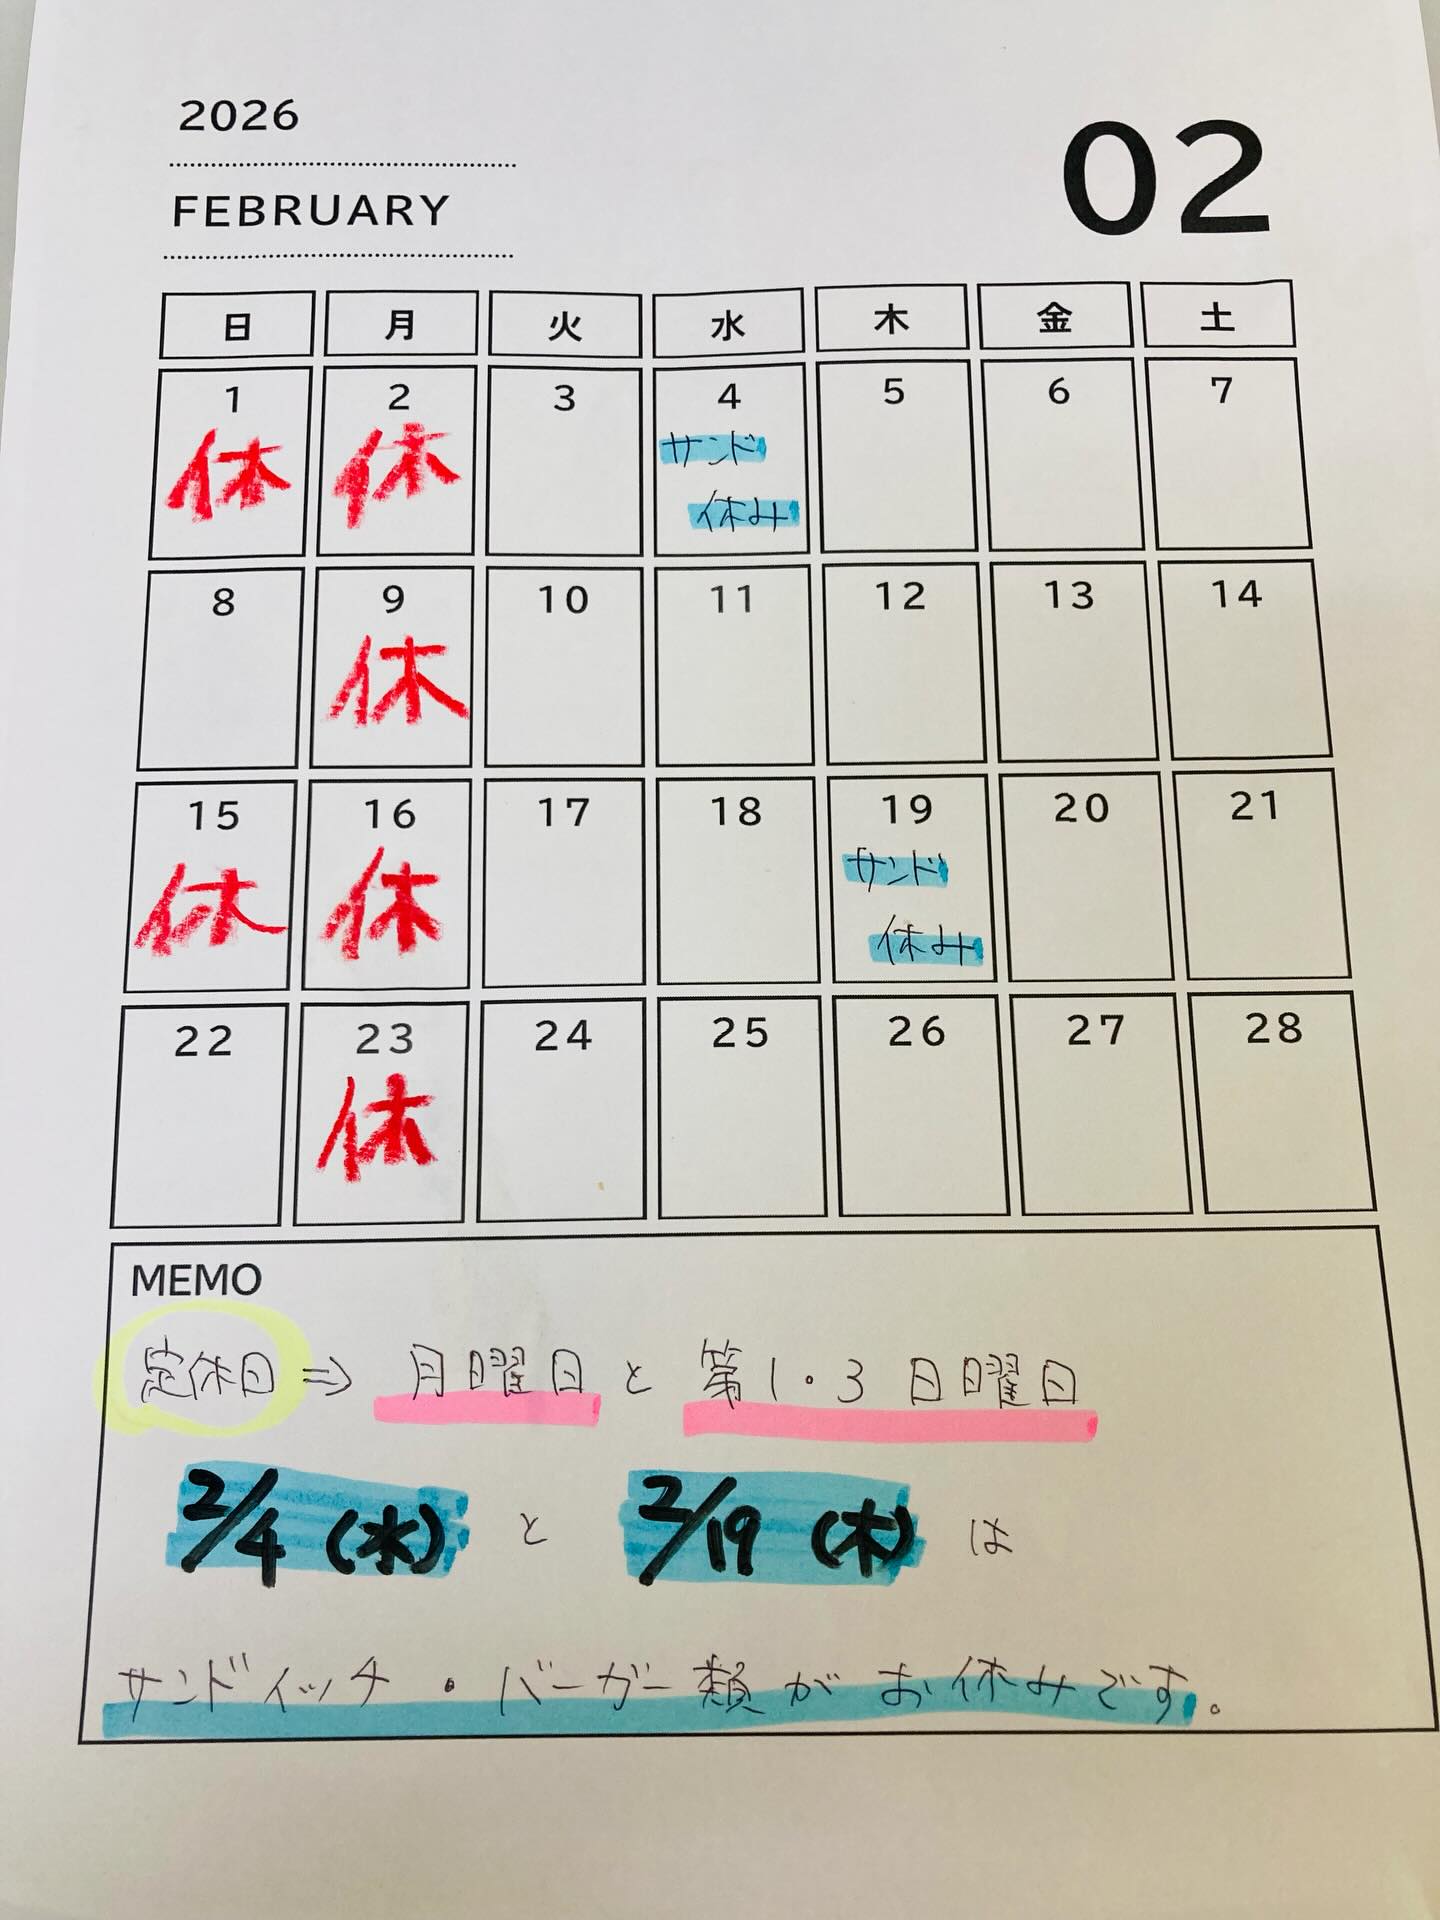 2026
FEBRUARY
02
日 月 火 水 木 金 土
1 2 3 4 5 6 7
休 休 サンド
休み
8 9 10 11 12 13 14
休
15 16 17 18 19 20 21
休 休 サンド
休み
22 23 24 25 26 27 28
休
MEMO
定休日 ⇒ 月曜日 と 第1・3 日曜日
2/4 (水) と 2/19 (木) は
サンドイッチ・バーガー類が お休みです。